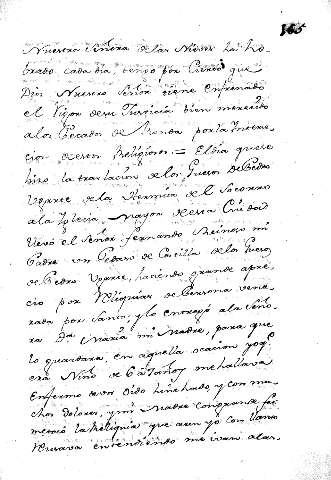 165
Nuestra Señora de las Nieves ha ho-
brado cada dia, tengo por Cierto que
Dios Nuestro Señor tiene enfrenado
el Vigor de su Justicia bien merecido
a los Pecados de Ronda por la Interce-
cion de estos Religiosos = El dia que se
hizo la traslacion de los Guesos de Pedro
Ugarte de la Hermita de el Socorro
a la Iglesia Mayor de esta Ciudad
llevó el Señor Fernando Reinoso mi
Padre un Pedazo de Costilla de los Guesos
de Pedro Ugarte, haciendo grande apre-
cio por Reliquias de Persona vene-
rada por Santo; y lo entregó a la Seño-
ra Dª Maria mi Madre, para que
lo guardara, en aquella ocacion yo q̃
era Niño de 6 a 7 años, me hallava
Enfermo de un Oido hinchado, y con mu-
chos dolores, y mi Madre con grande fee
me tocó la Reliquia que aun yo con tanta
entendiendo me ivan a las-